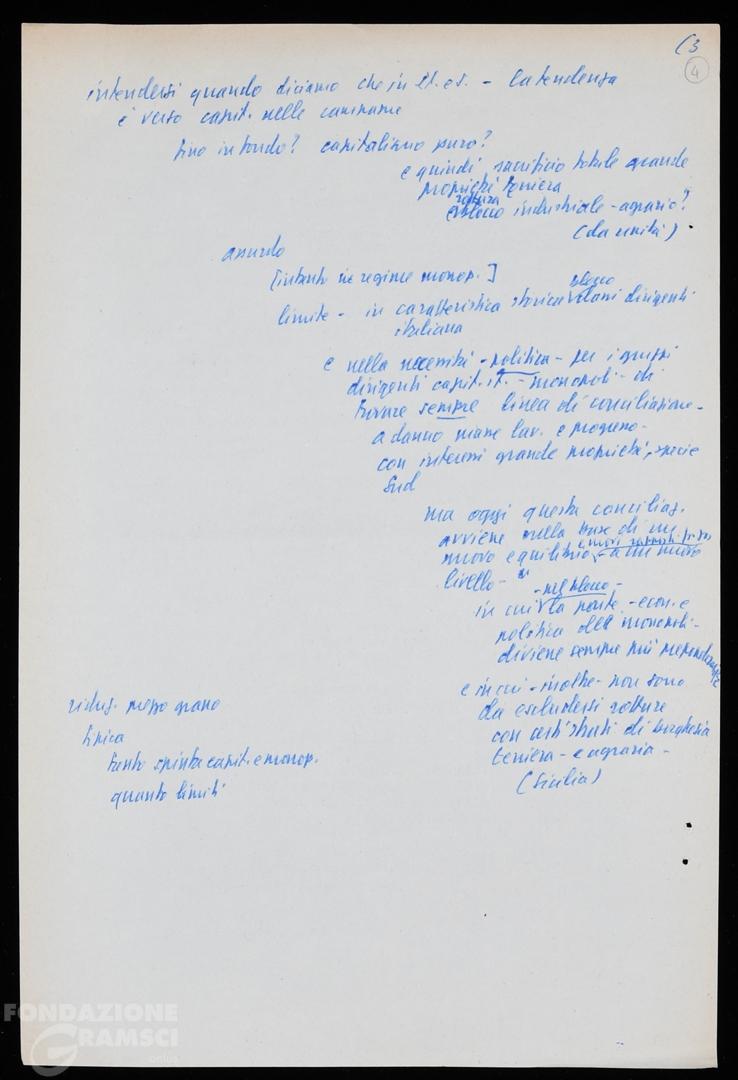 (3
4
intendersi quando diciamo che in It. es. - la tendenza
è verso capit. nelle campagne
fino in fondo? capitalismo puro?
e quindi sacrificio totale grande
proprietà terriera
rottura
e blocco industriale-agrario?
(da unità)
assurdo
[intanto in regime monop.]
blocco
limite - in caratteristica storica dirigenti
italiana
e nella necessità - politica - per i gruppi
dirigenti capit. it. - monopoli - di
trovare sempre linea di conciliazione -
a danno masse lav. e progresso -
con interessi grande proprietà, specie
Sud
ma oggi questa conciliaz.
avviene sulla base di un
e nuovi rapporti
nuovo equilibrio, - a un nuovo
livello -
- nel blocco -
in cui la parte - econ. e
politica dei monopoli -
diviene sempre più preponderante
e in cui - inoltre - non sono
da escludersi rotture
con certi strati di borghesia
terriera - e agraria -
(Sicilia)
riduz. prezzo grano
tipica
tanto spinta capit. e monop.
quanto limiti
FONDAZIONE
GRAMSCI
onlus